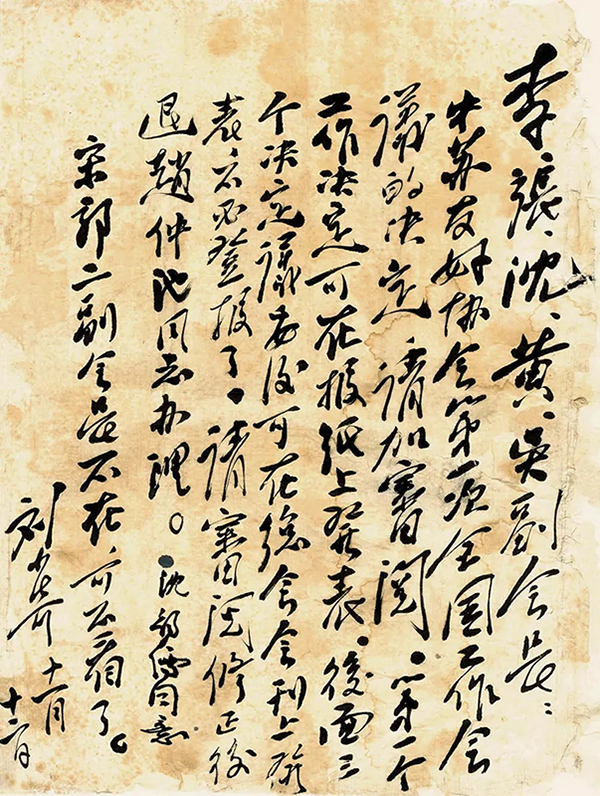 李、張、沈、黃、吳副会長：
中苏友好协会第一次全国工作会
議的决定，請加審閱。第一个
工作决定可在报纸上發表。後面三
个决定議妥後可在總会会刊上發
表，不必登报了。請審閱修正後
退趙仲池同志办理。
同意
宋郭二副会長不在可不看了。
刘少奇 十一月
十二日